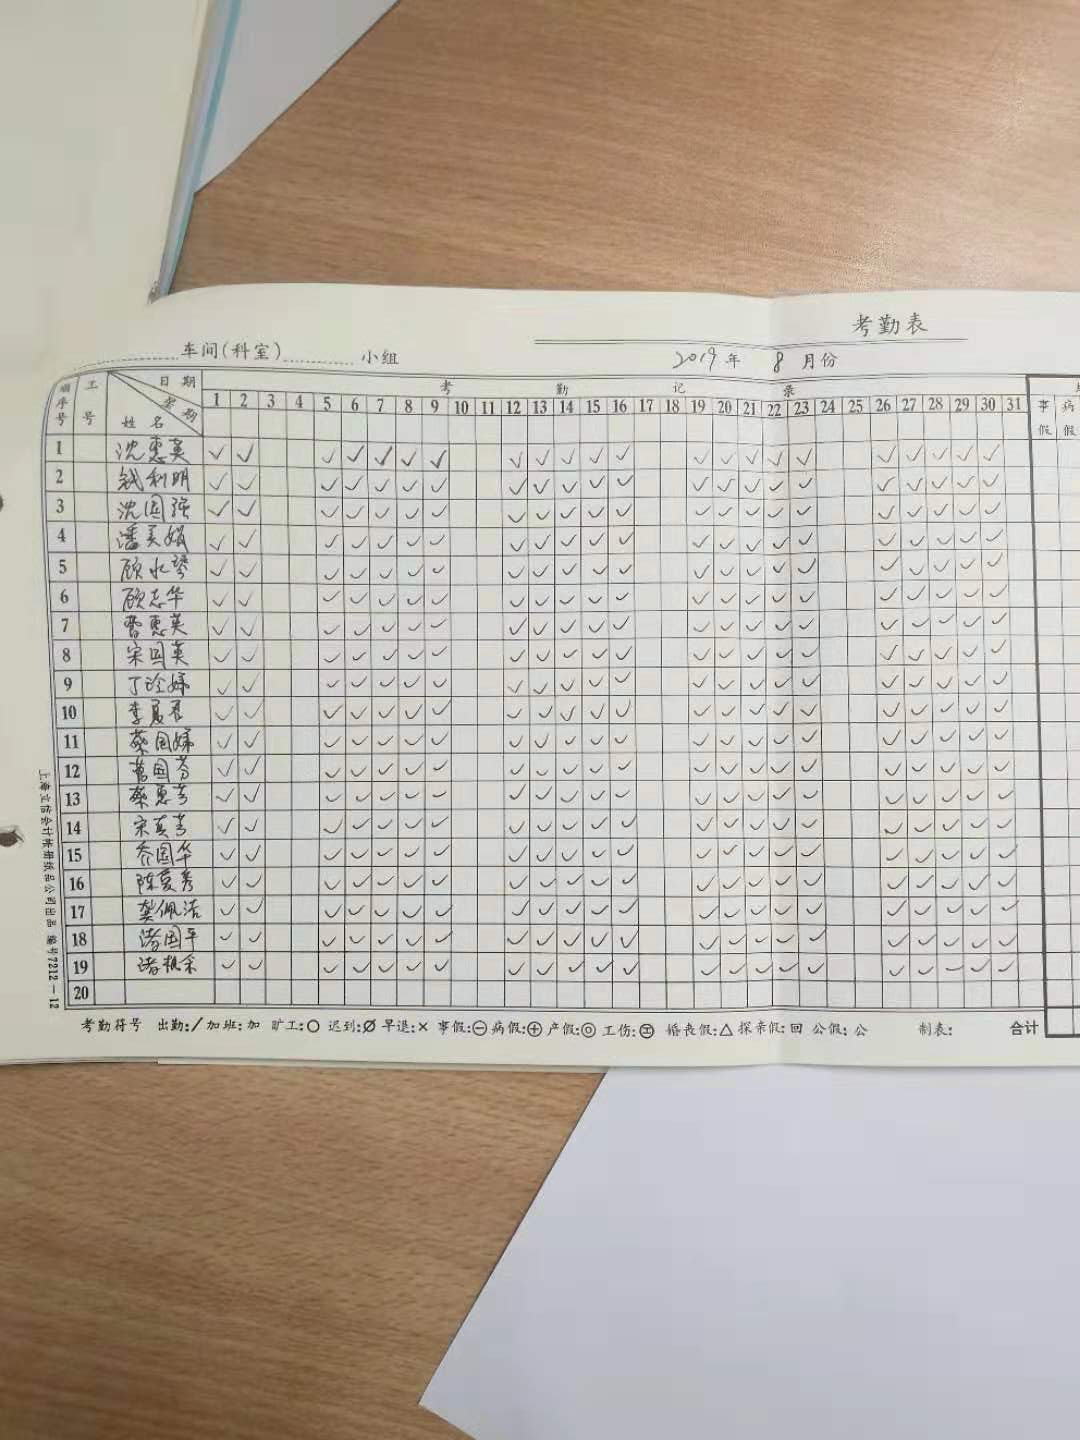 考勤表
车间(科室) 小组 2019年 8月份
顺序号 工号 日期 星期 姓名 考勤记录
1 2 3 4 5 6 7 8 9 10 11 12 13 14 15 16 17 18 19 20 21 22 23 24 25 26 27 28 29 30 31 事假 病假
1 沈惠英 ✓ ✓ ✓ ✓ ✓ ✓ ✓ ✓ ✓ ✓ ✓ ✓ ✓ ✓ ✓ ✓ ✓ ✓ ✓ ✓ ✓ ✓
2 钱利明 ✓ ✓ ✓ ✓ ✓ ✓ ✓ ✓ ✓ ✓ ✓ ✓ ✓ ✓ ✓ ✓ ✓ ✓ ✓ ✓ ✓ ✓
3 沈国强 ✓ ✓ ✓ ✓ ✓ ✓ ✓ ✓ ✓ ✓ ✓ ✓ ✓ ✓ ✓ ✓ ✓ ✓ ✓ ✓ ✓ ✓
4 潘美娟 ✓ ✓ ✓ ✓ ✓ ✓ ✓ ✓ ✓ ✓ ✓ ✓ ✓ ✓ ✓ ✓ ✓ ✓ ✓ ✓ ✓ ✓
5 顾水琴 ✓ ✓ ✓ ✓ ✓ ✓ ✓ ✓ ✓ ✓ ✓ ✓ ✓ ✓ ✓ ✓ ✓ ✓ ✓ ✓ ✓ ✓
6 顾志华 ✓ ✓ ✓ ✓ ✓ ✓ ✓ ✓ ✓ ✓ ✓ ✓ ✓ ✓ ✓ ✓ ✓ ✓ ✓ ✓ ✓ ✓
7 曹惠英 ✓ ✓ ✓ ✓ ✓ ✓ ✓ ✓ ✓ ✓ ✓ ✓ ✓ ✓ ✓ ✓ ✓ ✓ ✓ ✓ ✓ ✓
8 宋国英 ✓ ✓ ✓ ✓ ✓ ✓ ✓ ✓ ✓ ✓ ✓ ✓ ✓ ✓ ✓ ✓ ✓ ✓ ✓ ✓ ✓ ✓
9 丁玲娣 ✓ ✓ ✓ ✓ ✓ ✓ ✓ ✓ ✓ ✓ ✓ ✓ ✓ ✓ ✓ ✓ ✓ ✓ ✓ ✓ ✓ ✓
10 李夏 ✓ ✓ ✓ ✓ ✓ ✓ ✓ ✓ ✓ ✓ ✓ ✓ ✓ ✓ ✓ ✓ ✓ ✓ ✓ ✓ ✓ ✓
11 蔡国娣 ✓ ✓ ✓ ✓ ✓ ✓ ✓ ✓ ✓ ✓ ✓ ✓ ✓ ✓ ✓ ✓ ✓ ✓ ✓ ✓ ✓ ✓
12 国芬 ✓ ✓ ✓ ✓ ✓ ✓ ✓ ✓ ✓ ✓ ✓ ✓ ✓ ✓ ✓ ✓ ✓ ✓ ✓ ✓ ✓ ✓
13 蔡惠芳 ✓ ✓ ✓ ✓ ✓ ✓ ✓ ✓ ✓ ✓ ✓ ✓ ✓ ✓ ✓ ✓ ✓ ✓ ✓ ✓ ✓ ✓
14 宋芳 ✓ ✓ ✓ ✓ ✓ ✓ ✓ ✓ ✓ ✓ ✓ ✓ ✓ ✓ ✓ ✓ ✓ ✓ ✓ ✓ ✓ ✓
15 乔国华 ✓ ✓ ✓ ✓ ✓ ✓ ✓ ✓ ✓ ✓ ✓ ✓ ✓ ✓ ✓ ✓ ✓ ✓ ✓ ✓ ✓ ✓
16 陈夏秀 ✓ ✓ ✓ ✓ ✓ ✓ ✓ ✓ ✓ ✓ ✓ ✓ ✓ ✓ ✓ ✓ ✓ ✓ ✓ ✓ ✓ ✓
17 龚佩洁 ✓ ✓ ✓ ✓ ✓ ✓ ✓ ✓ ✓ ✓ ✓ ✓ ✓ ✓ ✓ ✓ ✓ ✓ ✓ ✓ ✓ ✓
18 诸国平 ✓ ✓ ✓ ✓ ✓ ✓ ✓ ✓ ✓ ✓ ✓ ✓ ✓ ✓ ✓ ✓ ✓ ✓ ✓ ✓ ✓ ✓
19 诸 ✓ ✓ ✓ ✓ ✓ ✓ ✓ ✓ ✓ ✓ ✓ ✓ ✓ ✓ ✓ ✓ ✓ ✓ ✓ ✓ ✓ ✓
20
考勤符号 出勤:/ 加班:加 旷工:○ 迟到:∅ 早退:× 事假:⊖ 病假:⊕ 产假:◎ 工伤:㊣ 婚丧假:△ 探亲假:回 公假:公 制表: 合计
上海立信会计账册纸品公司出品 编号7212-12